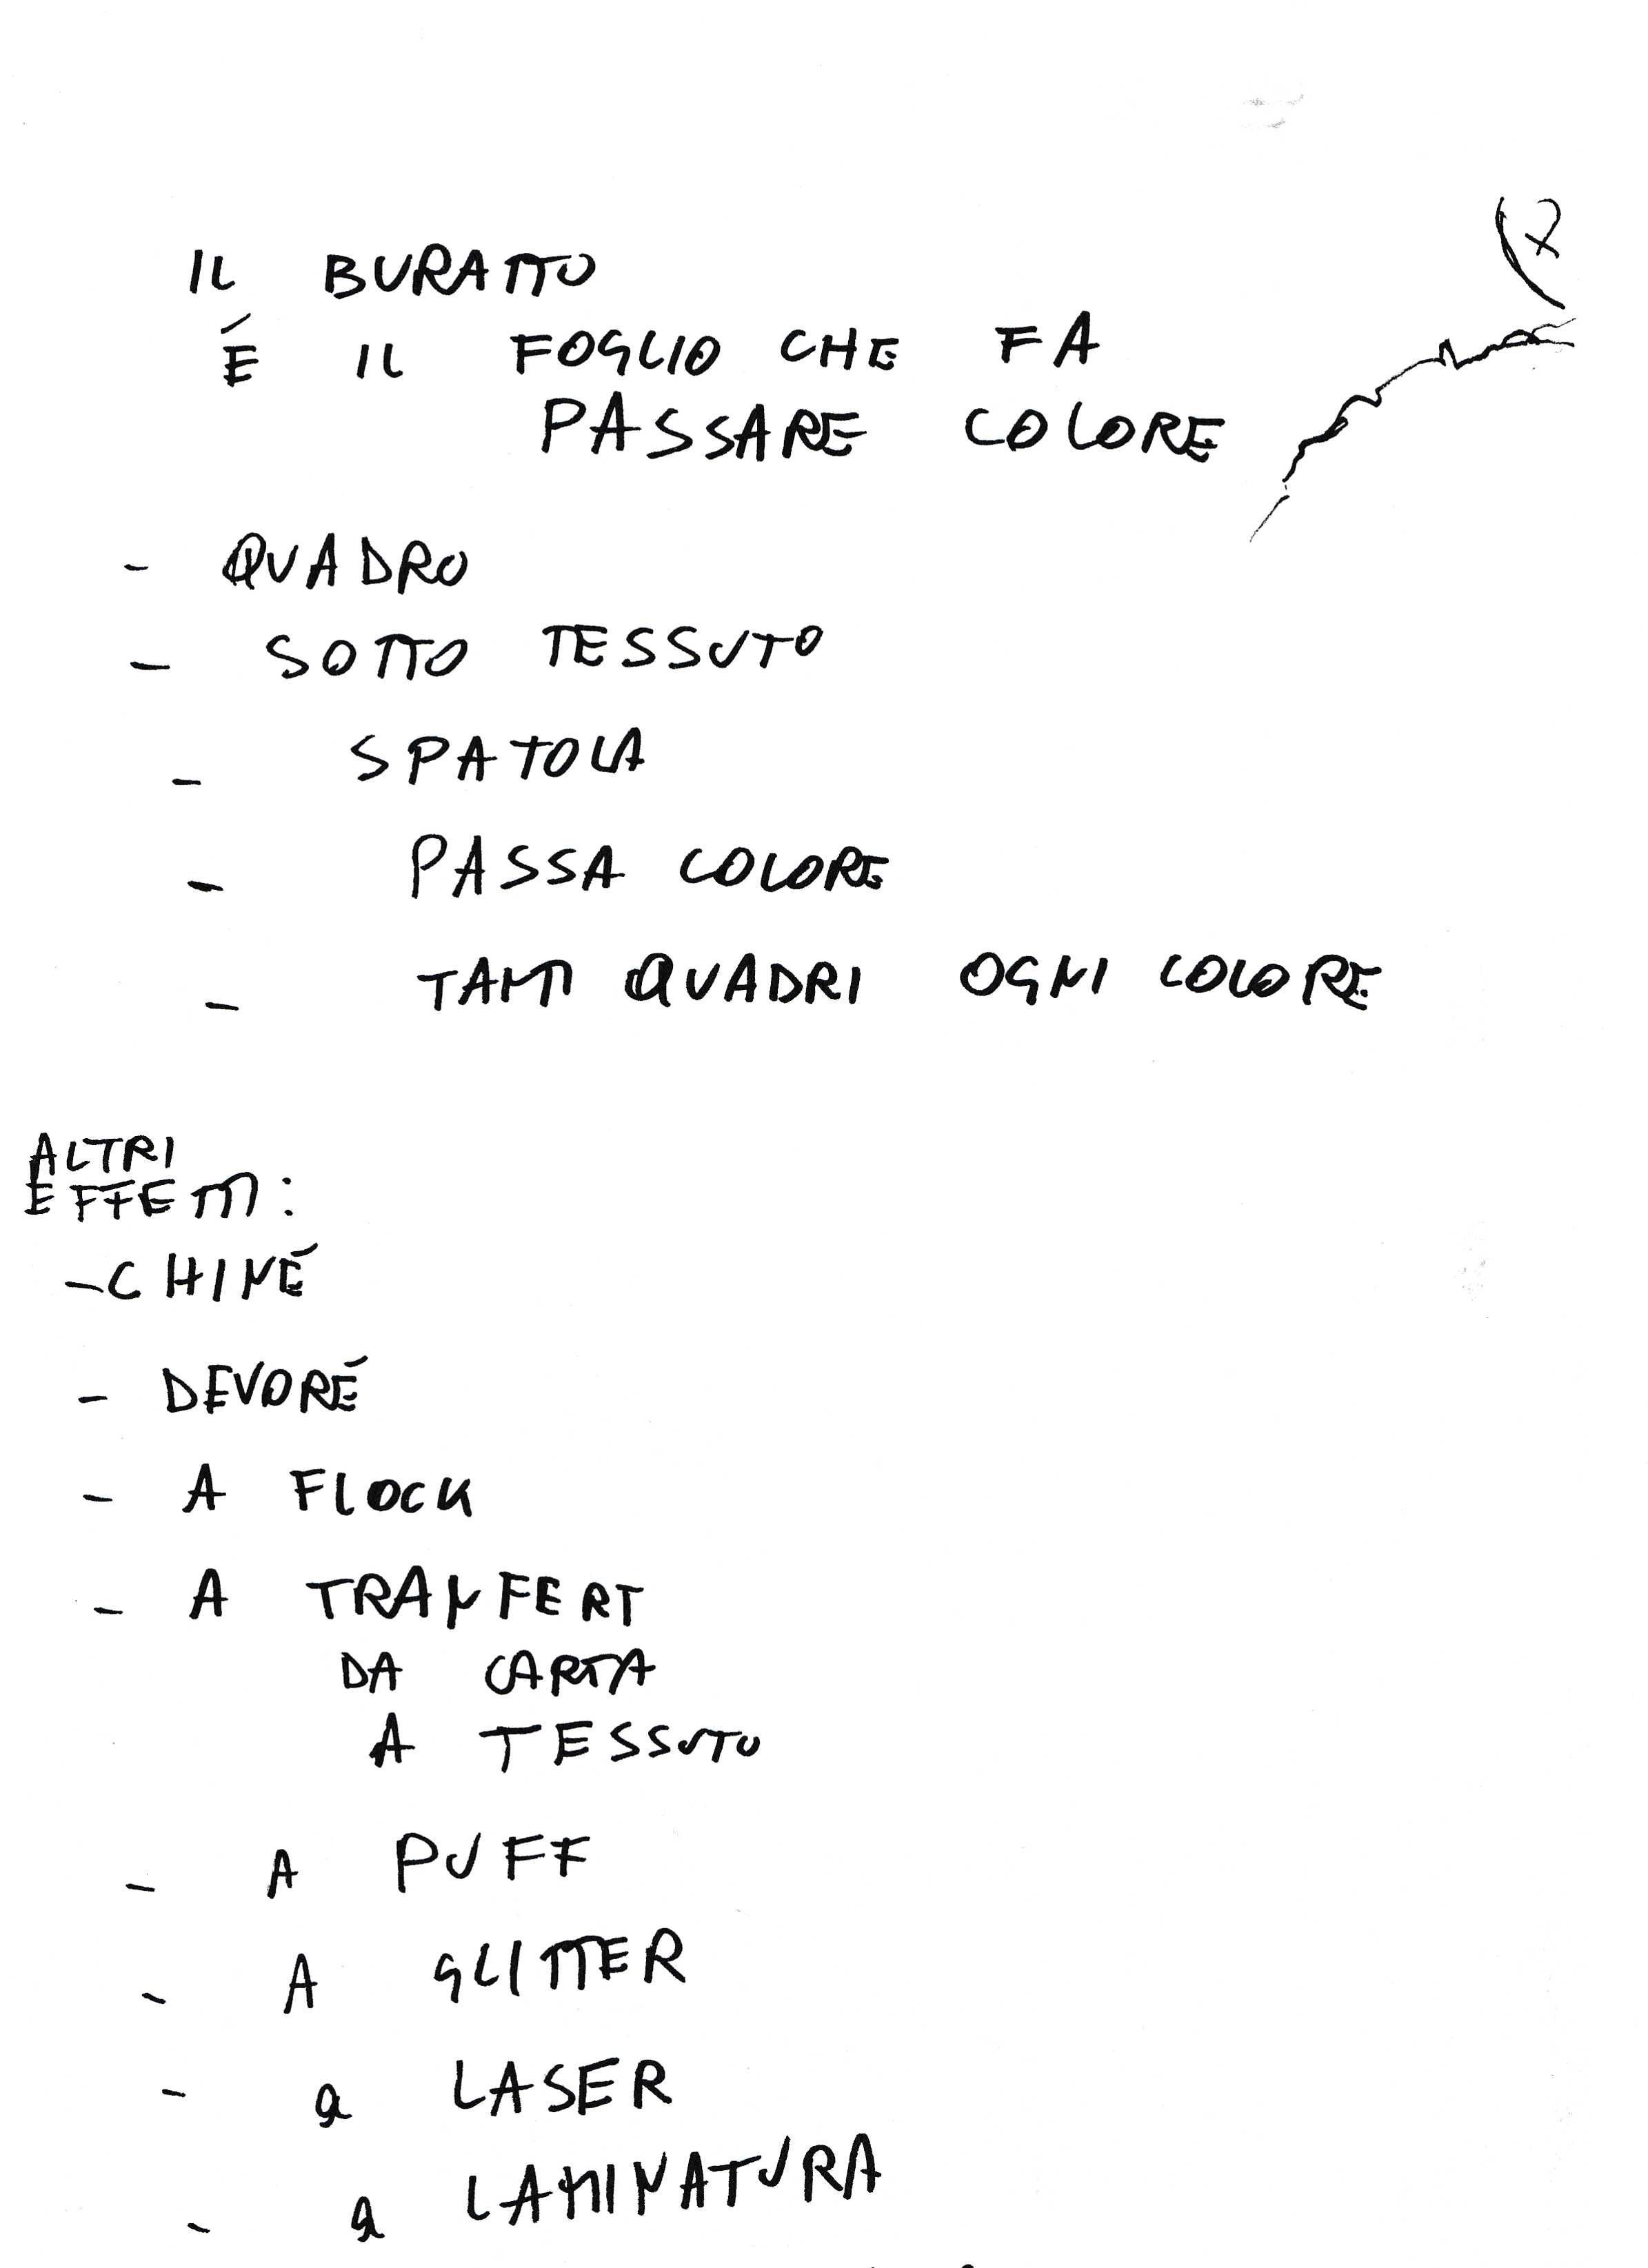 7
IL BURATTO
É IL FOGLIO CHE FA
PASSARE COLORE
- QUADRO
- SOTTO TESSUTO
- SPATOLA
- PASSA COLORE
- TANTI QUADRI OGNI COLORE
ALTRI
EFFETTI:
- CHINÉ
- DEVORÉ
- A FLOCK
- A TRANFERT
DA CARTA
A TESSUTO
- A PUFF
- A GLITTER
- a LASER
- a LAMINATURA